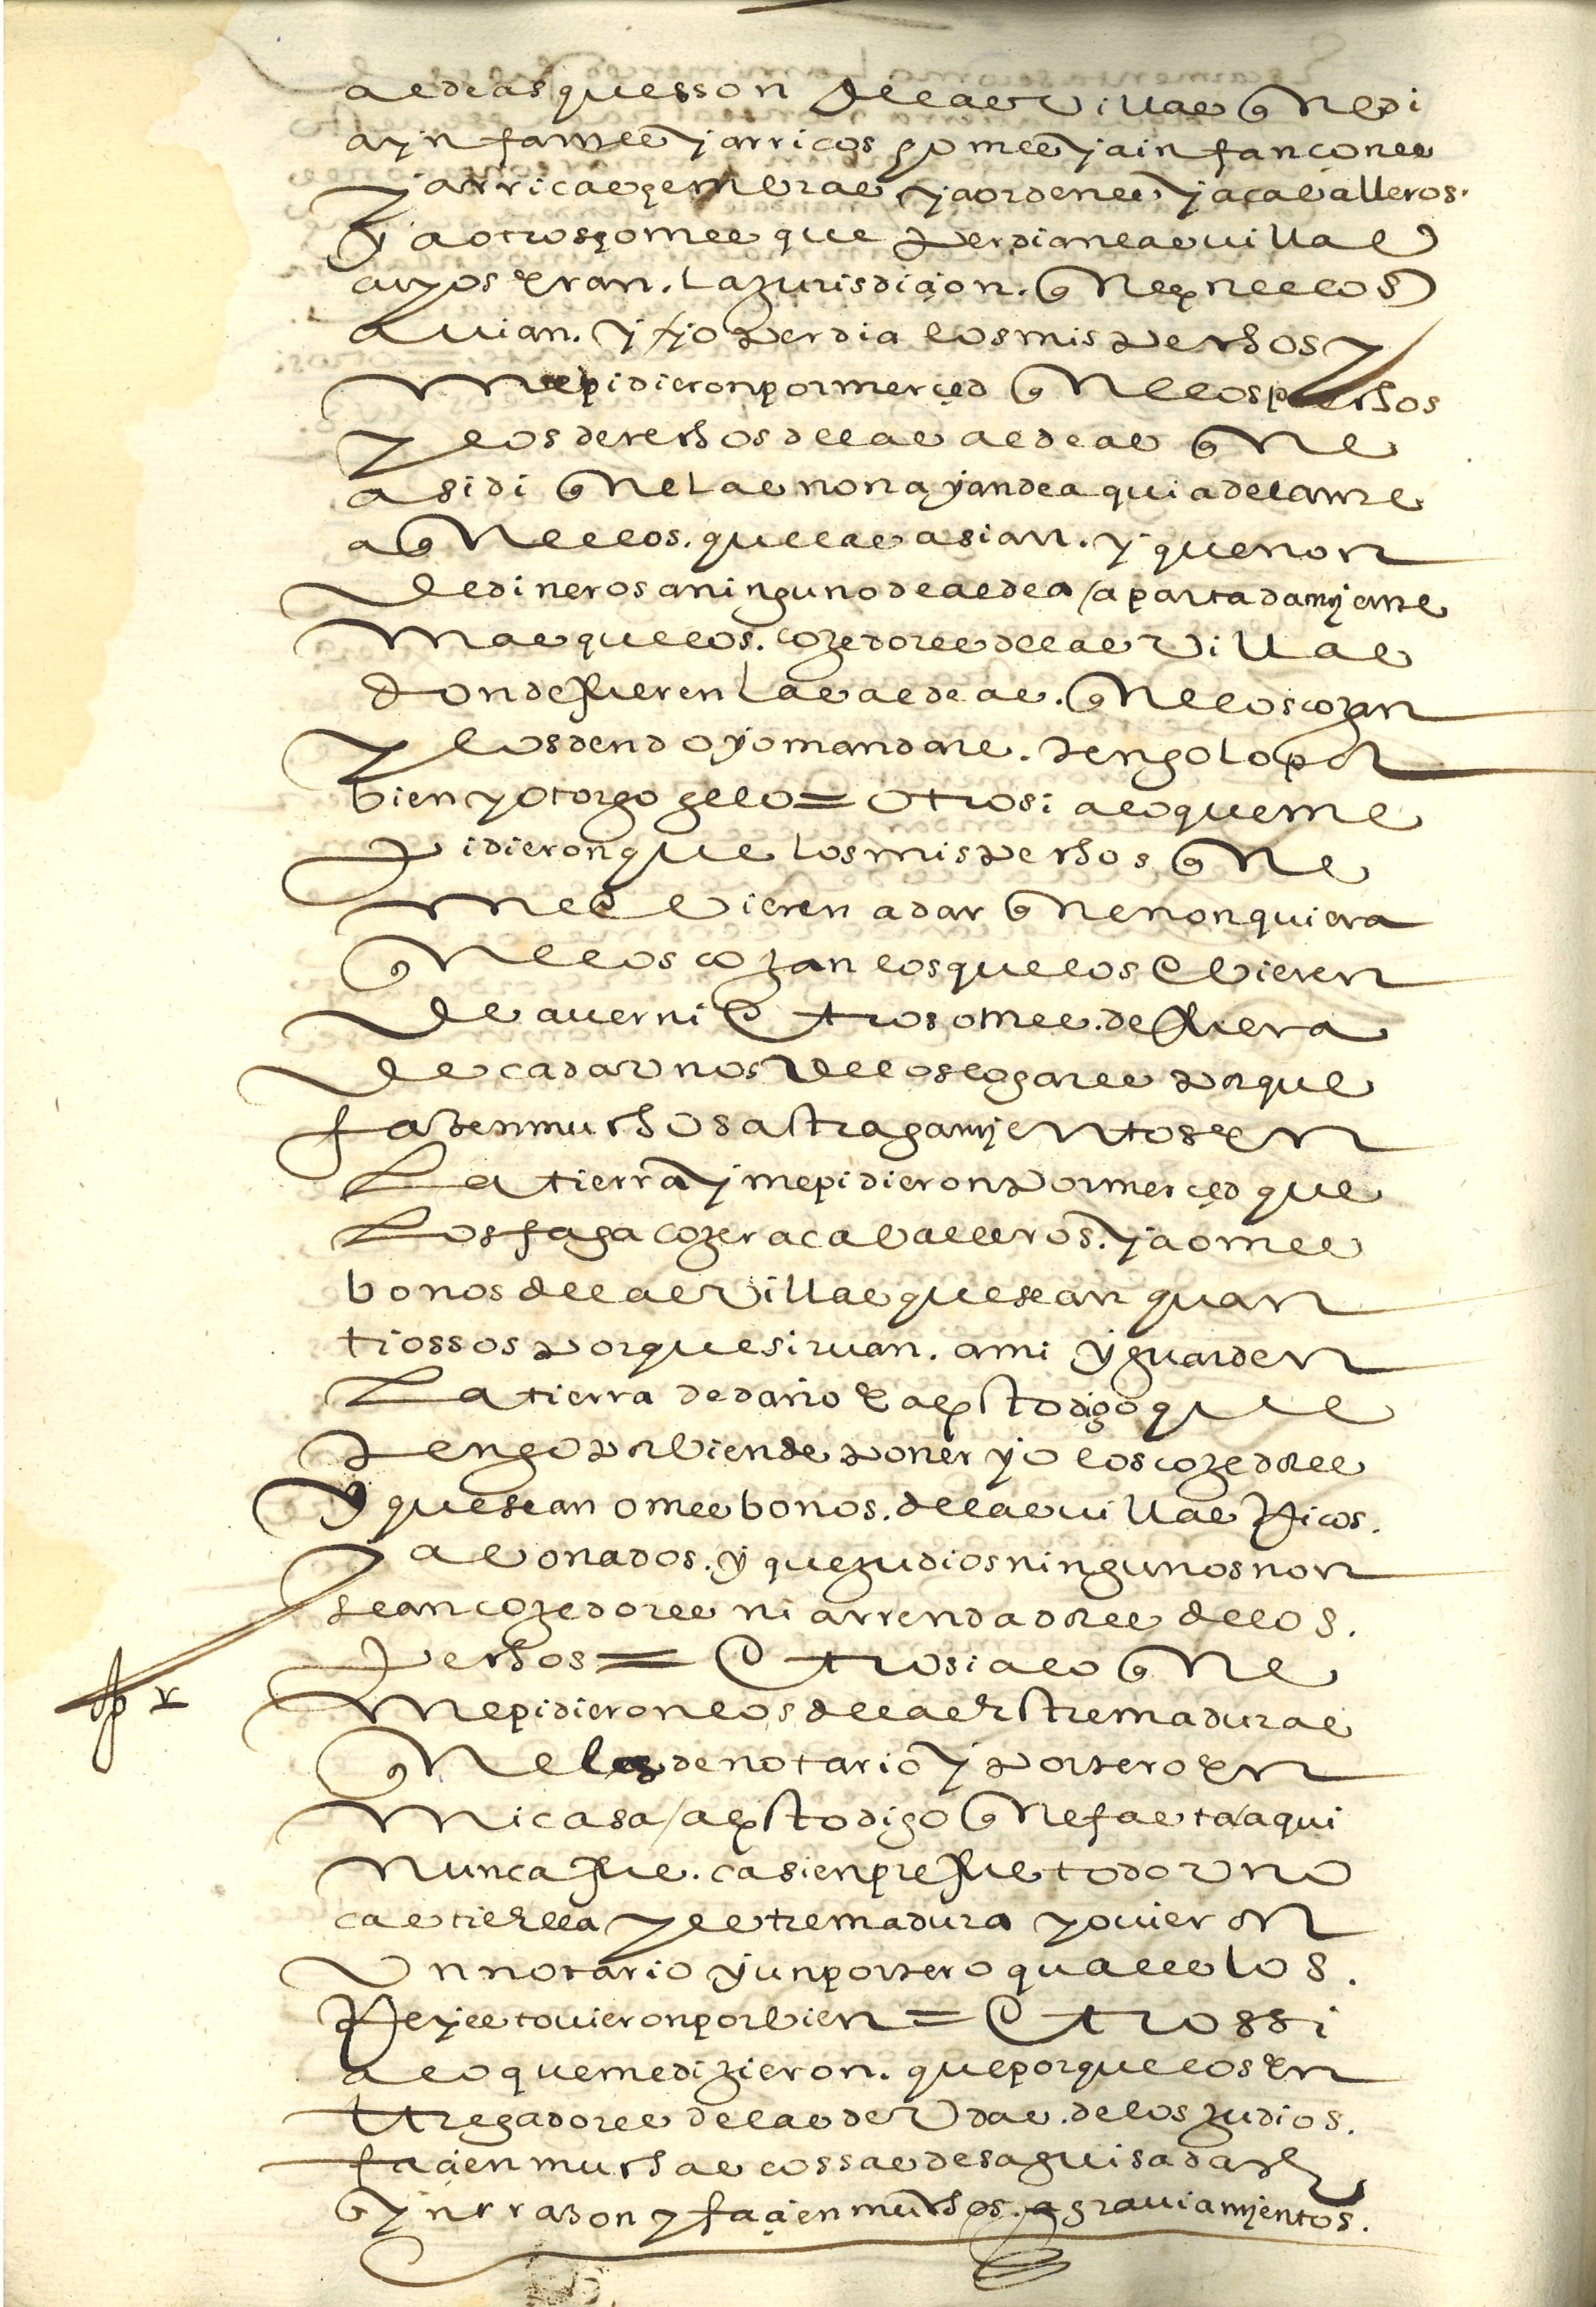 aldeas quesson delas villas q̃ lledi
aynfantes y arricos gomes y ainfançones
y arricas gembras y aordenes y acaualleros.
y aotros gomes que perdian las villas
cuyos eran. la jurisdiçion. que en ellos
auian. y yo perdia los mis pechos y
me pidieron por merçed que los pechos
y los derechos delas aldeas que
asi di que las non ayan de aqui adelante
aquellos. que las asian. y que non
de dineros a ninguno de aldea / apartadamyente
mas que los. cojedores delas villas
donde fueren las aldeas. que los cojan
y los den do yo mandare. tengo lo por
bien y otorgo gelo = otrosi alo que me
pidieron que los mis pechos que
me ovieren a dar que non quiera
que los cojan los que los ovieren
de auer ni otros omes. de fuera
de cada unos delos logares porque
fazen muchos astragamyentos en
la tierra y me pidieron por merçed que
los faga cojer a caualleros. y a omes
bonos delas villas que sean quan
tiossos porque siruan. a mi y guarden
la tierra de daño e a esto digo que
tengo por bien de poner yo los cojedores
y que sean omes bonos. delas uillas Ricos.
y abonados. y que judios ningunos non
sean cojedores ni arrendadores delos.
pechos = otrosi alo que
me pidieron los delas estremaduras
que les de notario y portero en
mi casa / a esto digo que fasta aqui
nunca fue. ca sienpre fue todo uno
castiella y estremadura y ouieron
un notario y un portero quales los.
Reyes touieron por bien = otrossi
alo que me dizieron. que porque los en
tregadores delas deudas. delos judios.
façien muchas cossas desaguisadas
syn rrazon y façien muchos. agrauiamyentos.